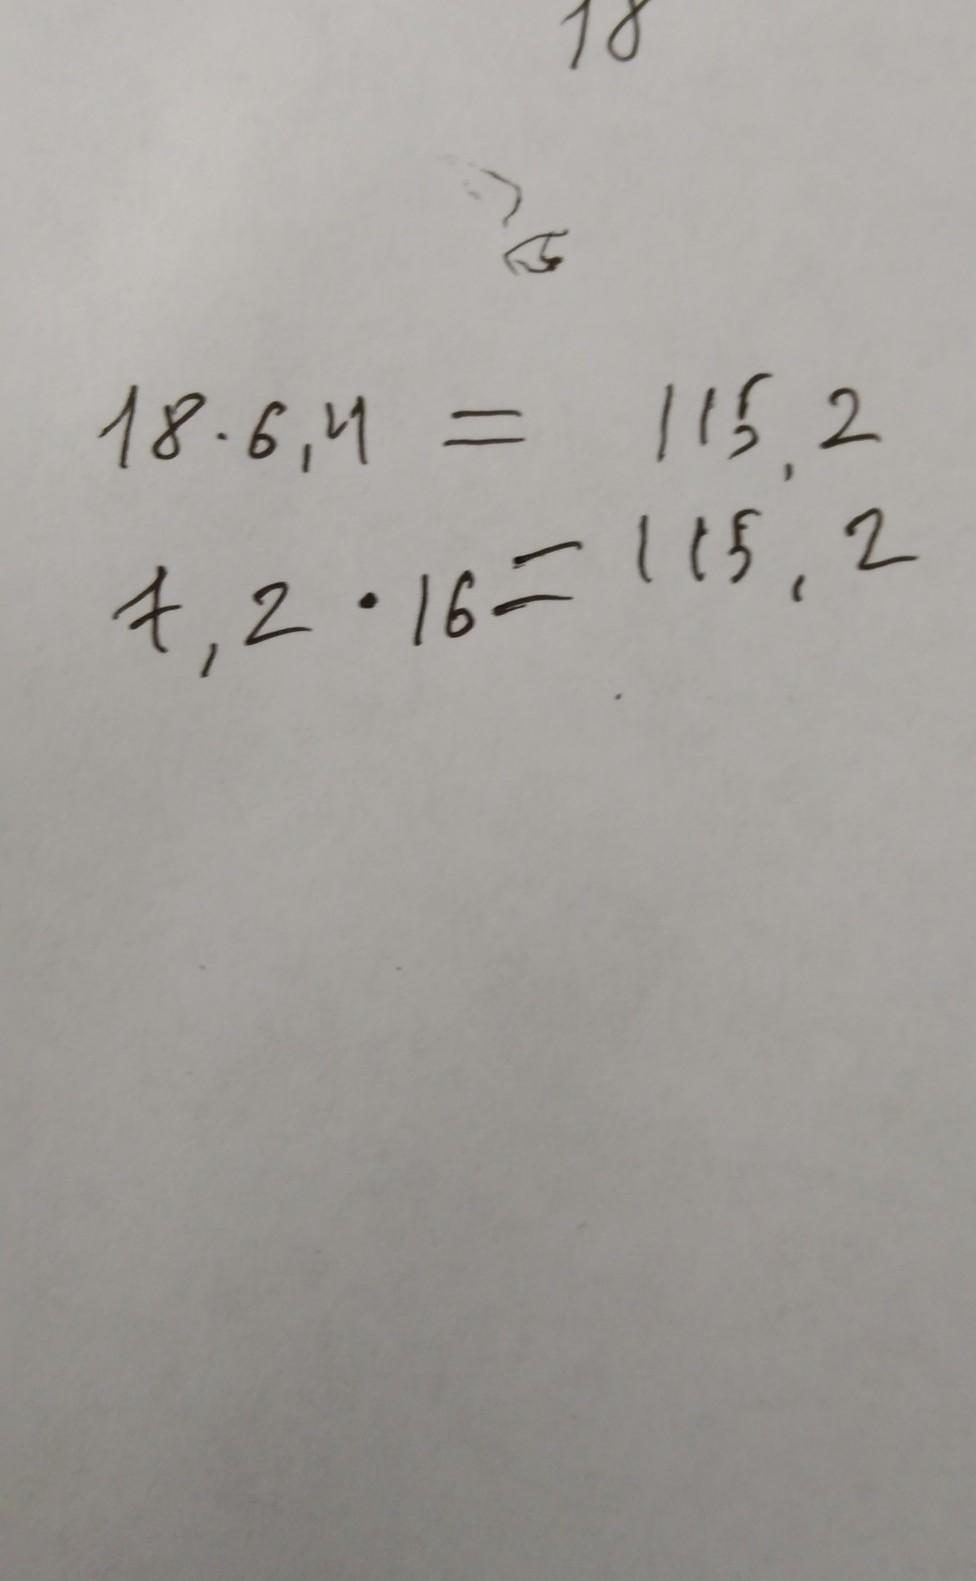 18
18·6,4 = 115,2
7,2·16=115,2